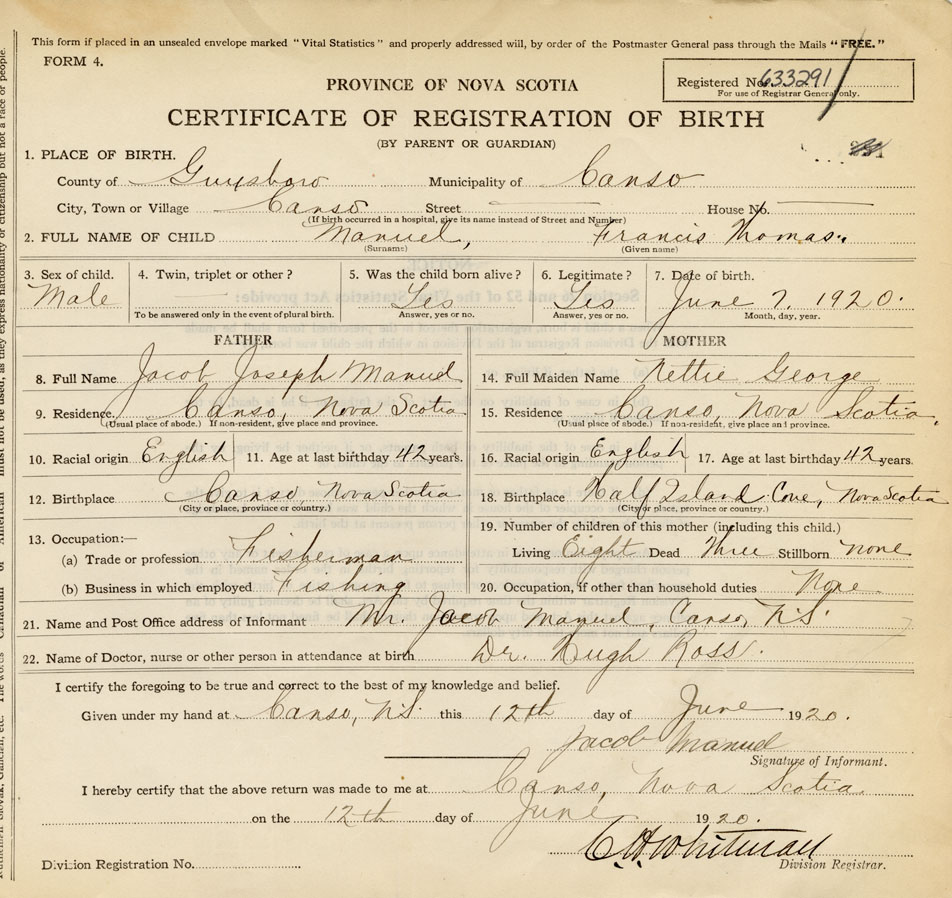 This form if placed in an unsealed envelope marked "Vital Statistics" and properly addressed will, by order of the Postmaster General pass through the Mails "FREE."
FORM 4.
Registered No. 633291
For use of Registrar General only.
PROVINCE OF NOVA SCOTIA
CERTIFICATE OF REGISTRATION OF BIRTH
(BY PARENT OR GUARDIAN)
1. PLACE OF BIRTH.
County of Guysboro Municipality of Canso
City, Town or Village Canso Street House No.
(If birth occurred in a hospital, give its name instead of Street and Number)
2. FULL NAME OF CHILD Manuel, Francis Thomas.
(Surname) (Given name)
3. Sex of child. 4. Twin, triplet or other? 5. Was the child born alive? 6. Legitimate? 7. Date of birth.
Male Yes Yes June 7. 1920.
To be answered only in the event of plural birth. Answer, yes or no. Answer, yes or no. Month, day, year.
FATHER
8. Full Name Jacob Joseph Manuel
9. Residence Canso, Nova Scotia
(Usual place of abode.) If non-resident, give place and province.
10. Racial origin English 11. Age at last birthday 42 years.
12. Birthplace Canso, Nova Scotia
(City or place, province or country.)
13. Occupation:—
(a) Trade or profession Fisherman
(b) Business in which employed Fishing
MOTHER
14. Full Maiden Name Nettie George
15. Residence Canso, Nova Scotia,
(Usual place of abode.) If non-resident, give place and province.
16. Racial origin English 17. Age at last birthday 42 years.
18. Birthplace Half Island Cove, Nova Scotia
(City or place, province or country.)
19. Number of children of this mother (including this child.)
Living Eight Dead Three Stillborn none
20. Occupation, if other than household duties None
21. Name and Post Office address of Informant Mr. Jacob Manuel, Canso, N.S.
22. Name of Doctor, nurse or other person in attendance at birth Dr. Hugh Ross.
I certify the foregoing to be true and correct to the best of my knowledge and belief.
Given under my hand at Canso, N.S. this 12th day of June 1920.
Jacob Manuel
Signature of Informant.
I hereby certify that the above return was made to me at Canso, Nova Scotia.
on the 12th day of June 1920.
C H Whitman
Division Registration No. Division Registrar.
must not be used, as they express nationality or citizenship but not a race or people.